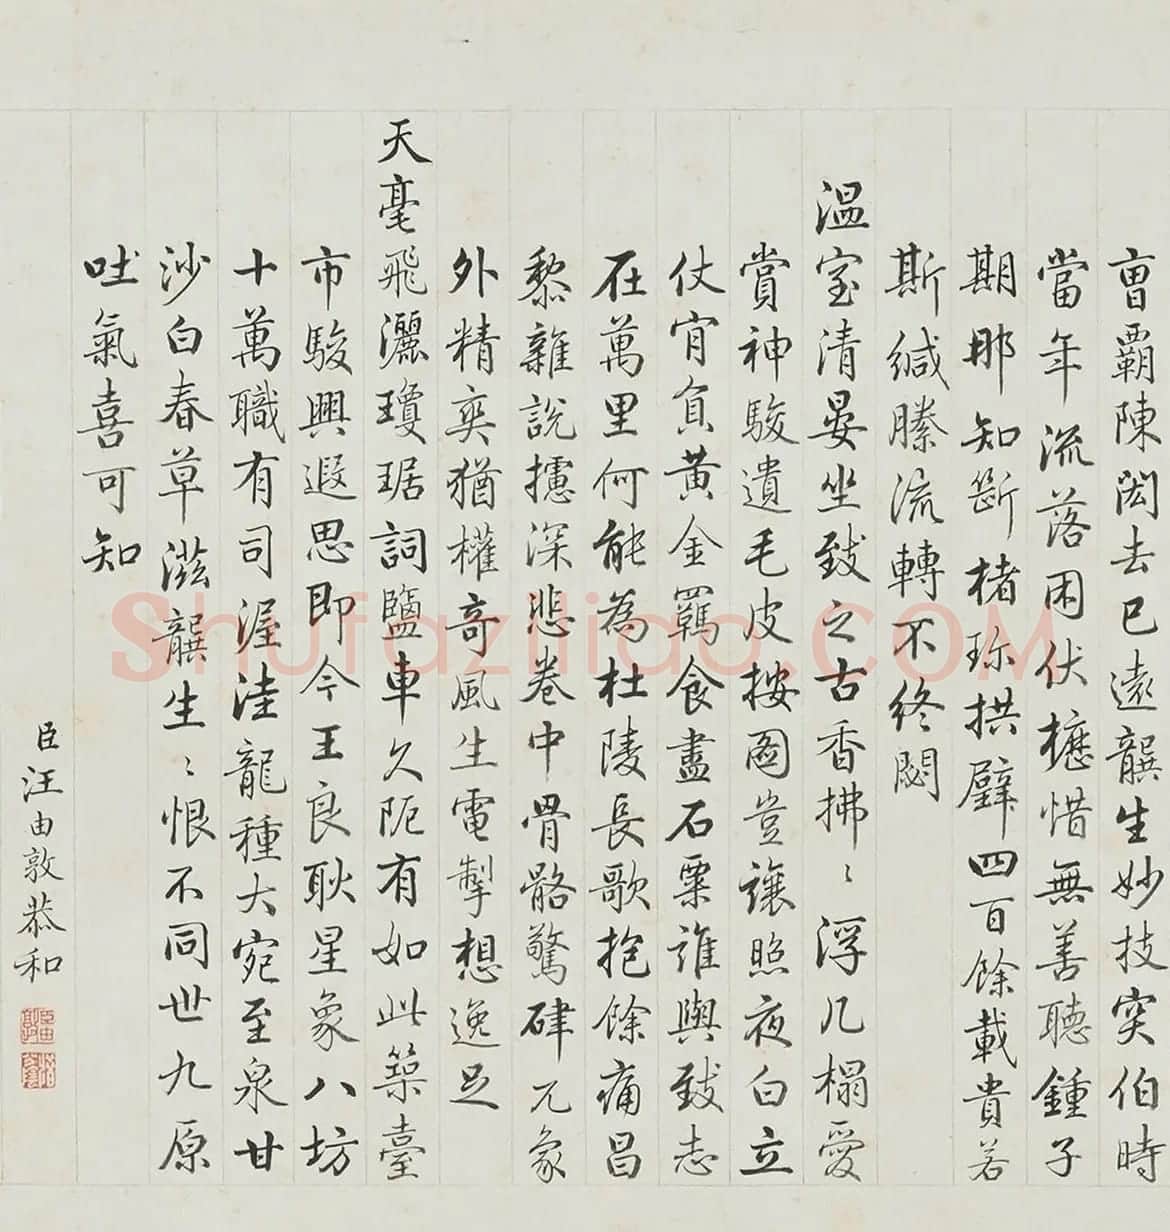 曹霸陳閎去已遠龔生妙技突伯時
當年流落困伏櫪惜無善聽鍾子
期那知斷楮珍拱璧四百餘載貴若
斯緘縢流轉不終閟
溫室清晏坐致之古香拂〻浮几榻愛
賞神駿遺毛皮按圖豈讓照夜白立
仗肯負黃金羈食盡石粟誰與致志
在萬里何能為杜陵長歌抱餘痛昌
黎雜說攄深悲卷中骨骼驚硉兀象
外精爽猶權奇風生電掣想逸足
天毫飛灑瓊琚詞鹽車久阨有如此築臺
市駿興遐思即今王良耿星象八坊
十萬職有司渥洼龍種大宛至泉甘
沙白春草滋龔生〻恨不同世九原
吐氣喜可知
臣汪由敦恭和
Shufaziliao.COM